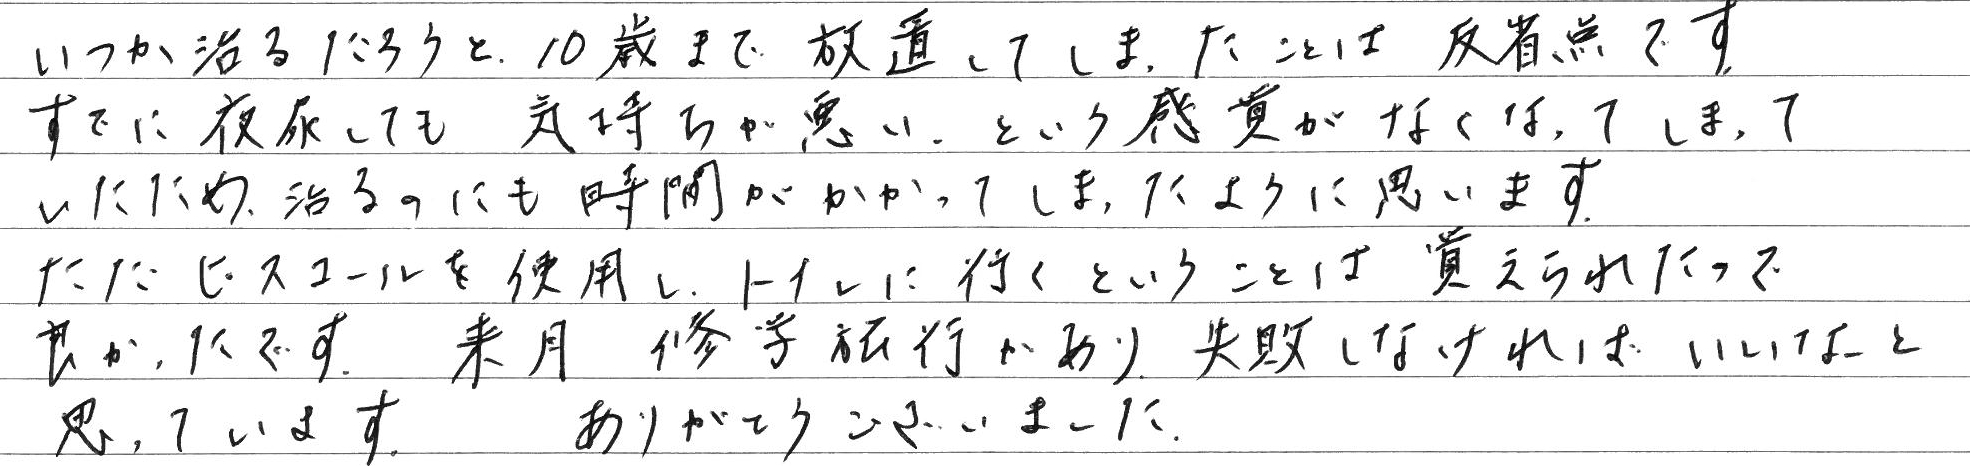 いつか治るだろうと、10歳まで放置してしまったことは反省点です。
すでに夜尿しても 気持ちが悪い、という感覚がなくなってしまって
いたため、治るのにも時間がかかってしまったように思います。
ただピスコールを使用し、トイレに行くということは覚えられたので
良かったです。 来月 修学旅行があり、失敗しなければいいなーと
思っています。 ありがとうございました。